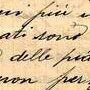 più
ati sono
delle più
non per